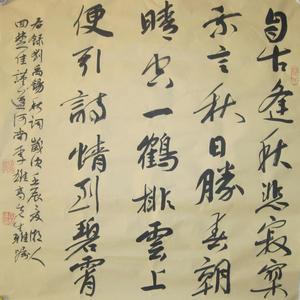 自古逢秋悲寂寥
我言秋日勝春朝
晴空一鶴排雲上
便引詩情到碧霄
右錄劉禹錫秋詞歲次壬辰夏
河南李雄高先生雅